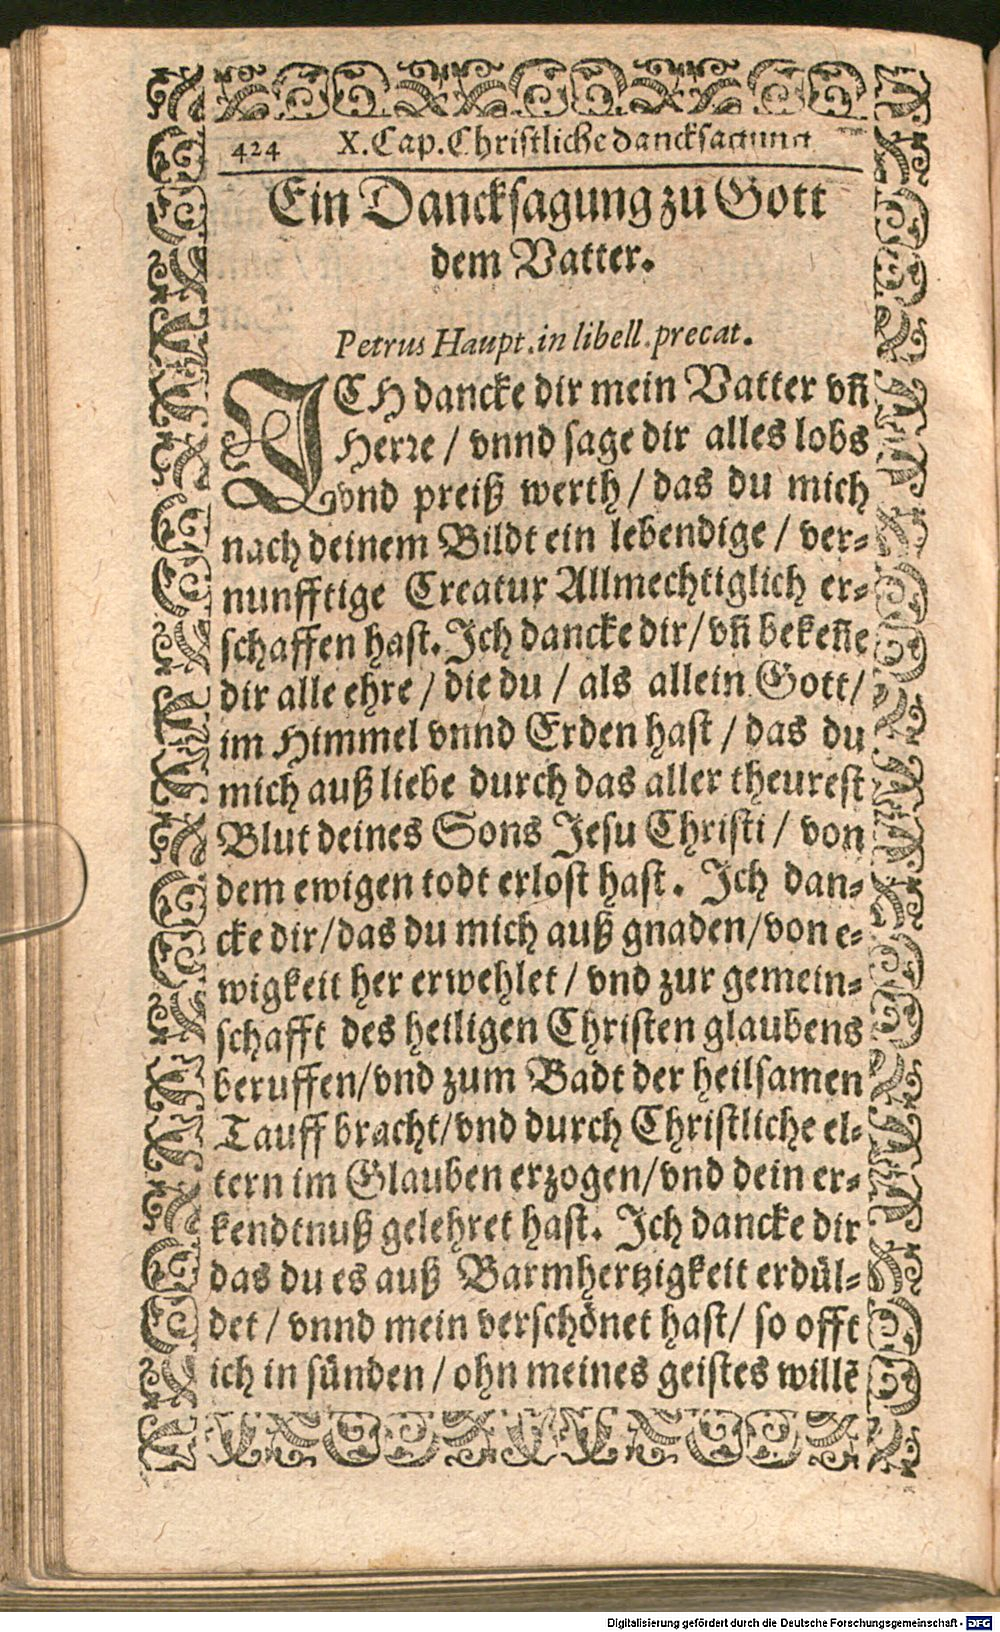 424 X. Cap. Christliche dancksagung
Ein Dancksagung zu Gott
dem Vatter.
Petrus Haupt. in libell. precat.
ICH dancke dir mein Vatter vn̄
Herꝛe / vnnd sage dir alles lobs
vnd preiß werth / das du mich
nach deinem Bildt ein lebendige / ver⸗
nunfftige Creatur Allmechtiglich er⸗
schaffen hast. Ich dancke dir / vn̄ beken̄e
dir alle ehre / die du / als allein Gott /
im Himmel vnnd Erden hast / das du
mich auß liebe durch das aller theurest
Blut deines Sons Jesu Christi / von
dem ewigen todt erlost hast. Ich dan⸗
cke dir / das du mich auß gnaden / von e⸗
wigkeit her erwehlet / vnd zur gemein⸗
schafft des heiligen Christen glaubens
beruffen / vnd zum Badt der heilsamen
Tauff bracht / vnd durch Christliche el⸗
tern im Glauben erzogen / vnd dein er⸗
kendtnuß gelehret hast. Ich dancke dir
das du es auß Barmhertzigkeit erdül⸗
det / vnnd mein verschönet hast / so offt
ich in sünden / ohn meines geistes willē
Digitalisierung gefördert durch die Deutsche Forschungsgemeinschaft - DFG